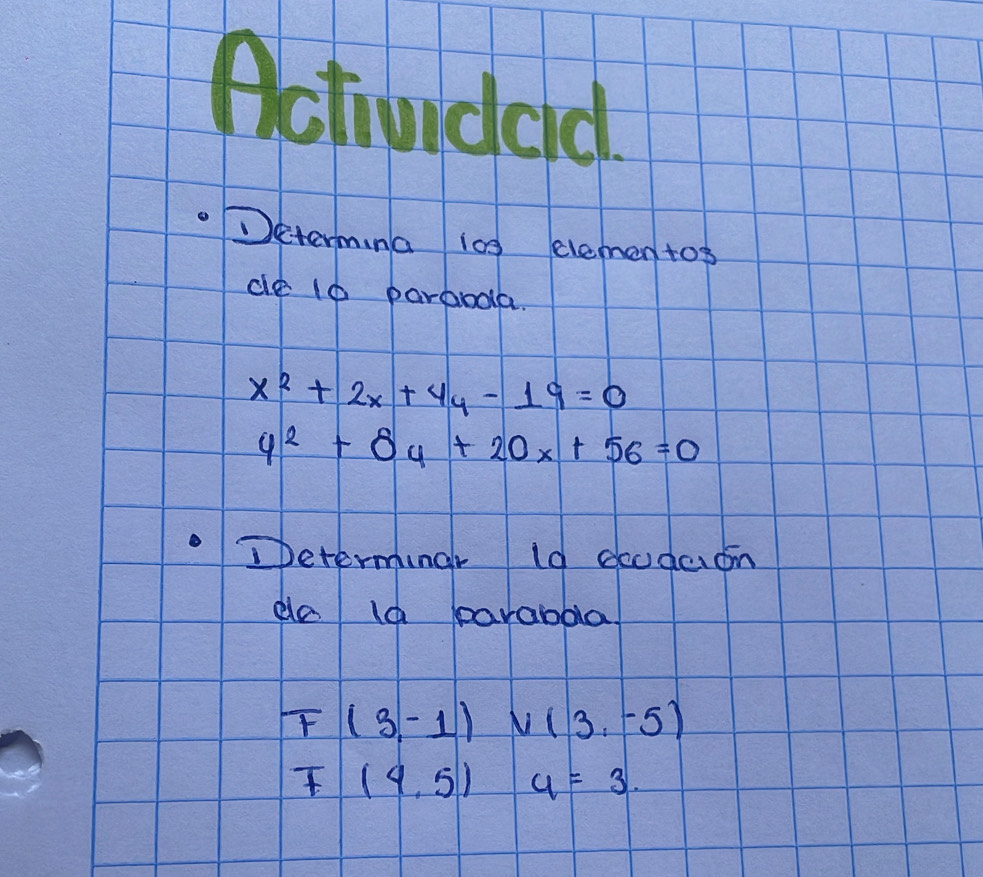 Actividad.
• Determina los elementos
de la parabola.
x² + 2x + 4y - 19 = 0
y² + 8y + 20x + 56 = 0
• Determinar la ecuación
de la parabola.
F (3, -1) V (3, -5)
F (4, 5) y = 3.